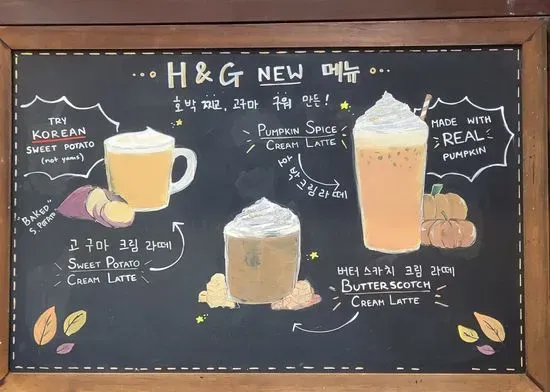 H & G NEW 메뉴
호박 찌고, 고구마 구워 만든!
TRY
KOREAN
SWEET POTATO
(not yams)
PUMPKIN SPICE
CREAM LATTE
호박 크림 라떼
MADE WITH
REAL
PUMPKIN
"BAKED"
S. POTATO
고구마 크림 라떼
SWEET POTATO
CREAM LATTE
버터스카치 크림 라떼
BUTTERSCOTCH
CREAM LATTE